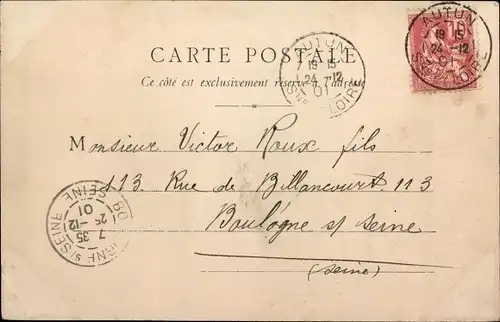 CARTE POSTALE
Ce côté est exclusivement réservé à l'adresse
AUTUN
19 15
24 -12
01
SNE LOIRE
AUTUN
19 15
24 -12
Monsieur Victor Roux fils
113 Rue de Billancourt. 113
Boulogne s/ seine
(seine)
7 35
25 -12
01
SEINE